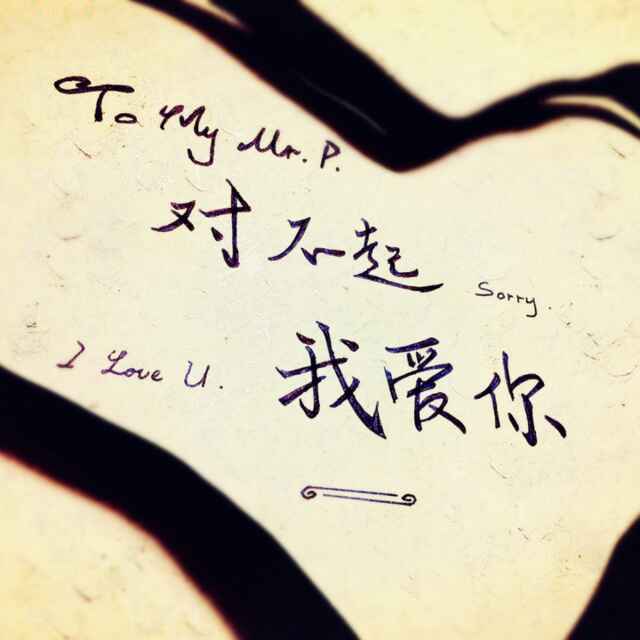 To My Mr. P.
对不起
Sorry..
I Love U.
我爱你